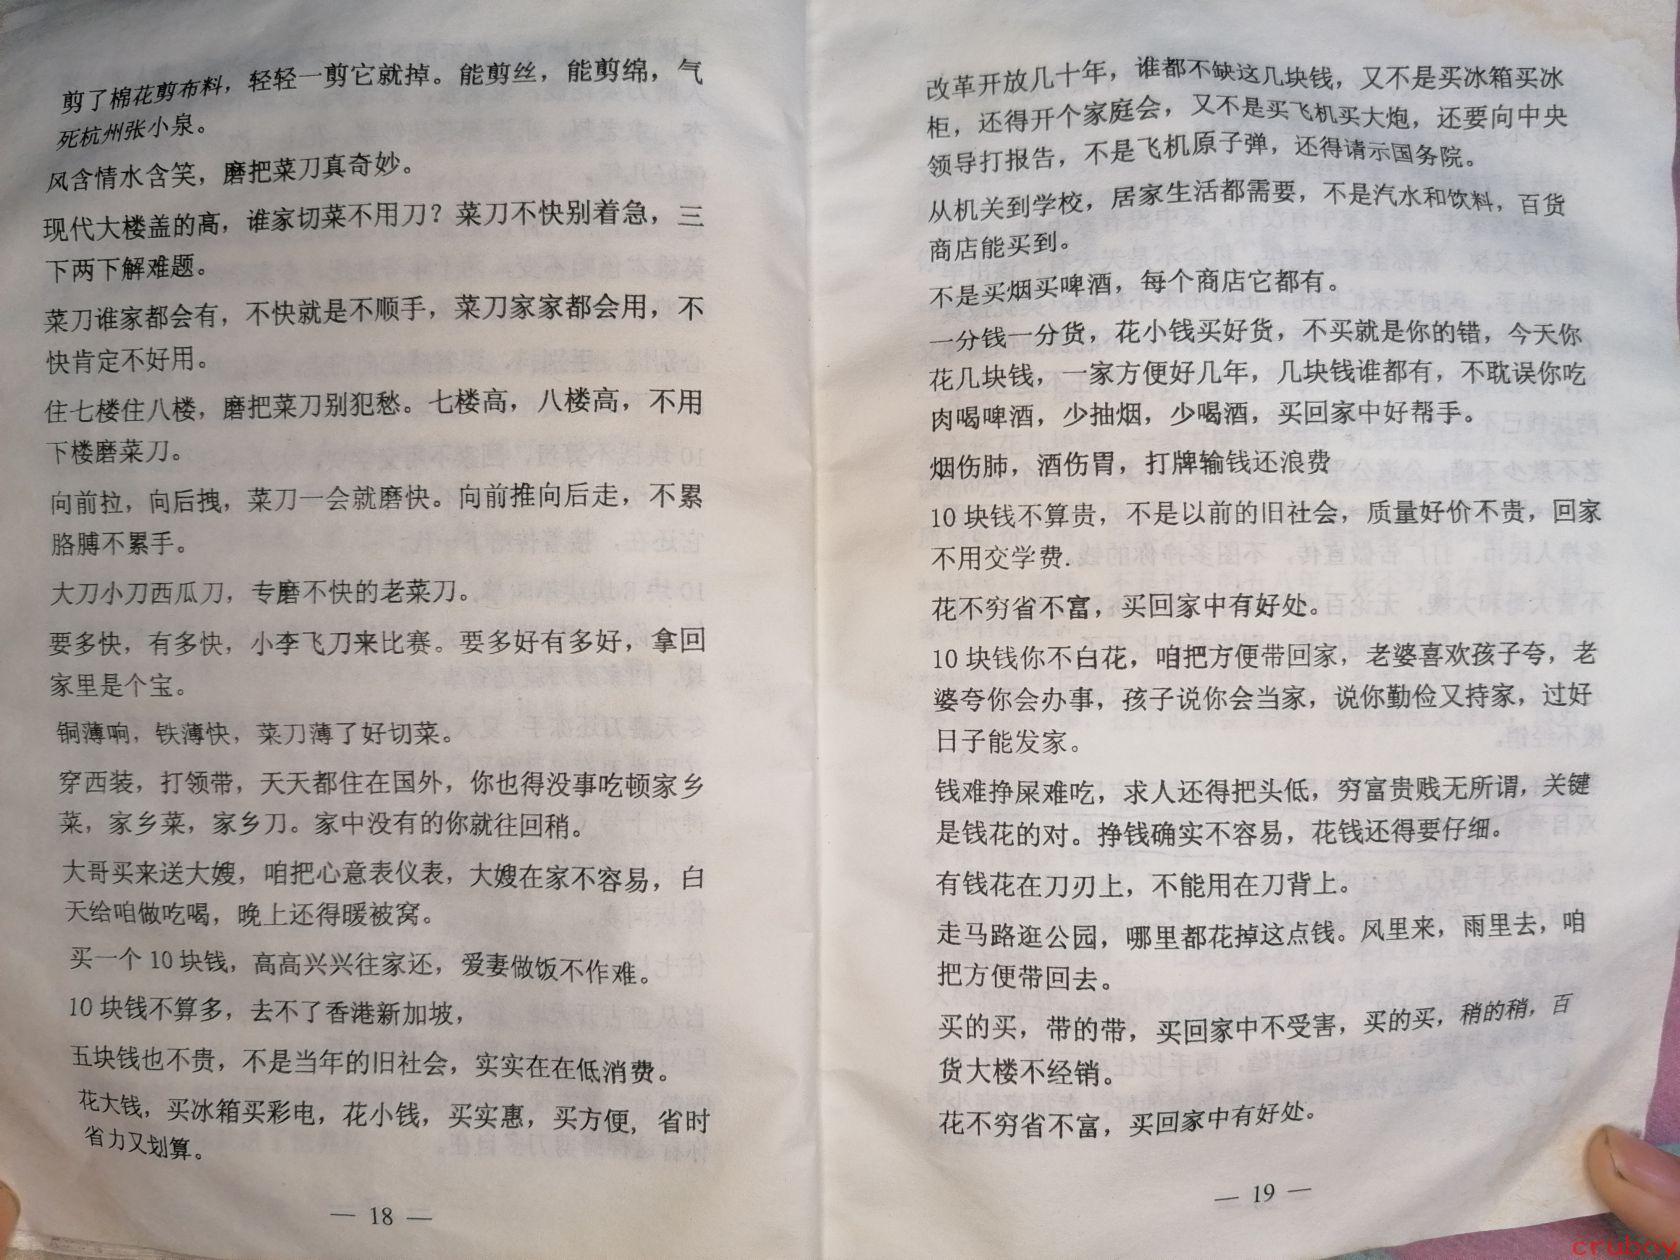 剪了棉花剪布料，轻轻一剪它就掉。能剪丝，能剪绵，气
死杭州张小泉。
风含情水含笑，磨把菜刀真奇妙。
现代大楼盖的高，谁家切菜不用刀？菜刀不快别着急，三
下两下解难题。
菜刀谁家都会有，不快就是不顺手，菜刀家家都会用，不
快肯定不好用。
住七楼住八楼，磨把菜刀别犯愁。七楼高，八楼高，不用
下楼磨菜刀。
向前拉，向后拽，菜刀一会就磨快。向前推向后走，不累
胳膊不累手。
大刀小刀西瓜刀，专磨不快的老菜刀。
要多快，有多快，小李飞刀来比赛。要多好有多好，拿回
家里是个宝。
铜薄响，铁薄快，菜刀薄了好切菜。
穿西装，打领带，天天都住在国外，你也得没事吃顿家乡
菜，家乡菜，家乡刀。家中没有的你就往回稍。
大哥买来送大嫂，咱把心意表仪表，大嫂在家不容易，白
天给咱做吃喝，晚上还得暖被窝。
买一个 10 块钱，高高兴兴往家还，爱妻做饭不作难。
10 块钱不算多，去不了香港新加坡，
五块钱也不贵，不是当年的旧社会，实实在在低消费。
花大钱，买冰箱买彩电，花小钱，买实惠，买方便，省时
省力又划算。
— 18 —
改革开放几十年，谁都不缺这几块钱，又不是买冰箱买冰
柜，还得开个家庭会，又不是买飞机买大炮，还要向中央
领导打报告，不是飞机原子弹，还得请示国务院。
从机关到学校，居家生活都需要，不是汽水和饮料，百货
商店能买到。
不是买烟买啤酒，每个商店它都有。
一分钱一分货，花小钱买好货，不买就是你的错，今天你
花几块钱，一家方便好几年，几块钱谁都有，不耽误你吃
肉喝啤酒，少抽烟，少喝酒，买回家中好帮手。
烟伤肺，酒伤胃，打牌输钱还浪费
10 块钱不算贵，不是以前的旧社会，质量好价不贵，回家
不用交学费.
花不穷省不富，买回家中有好处。
10 块钱你不白花，咱把方便带回家，老婆喜欢孩子夸，老
婆夸你会办事，孩子说你会当家，说你勤俭又持家，过好
日子能发家。
钱难挣屎难吃，求人还得把头低，穷富贵贱无所谓，关键
是钱花的对。挣钱确实不容易，花钱还得要仔细。
有钱花在刀刃上，不能用在刀背上。
走马路逛公园，哪里都花掉这点钱。风里来，雨里去，咱
把方便带回去。
买的买，带的带，买回家中不受害，买的买，稍的稍，百
货大楼不经销。
花不穷省不富，买回家中有好处。
— 19 —
cruboy